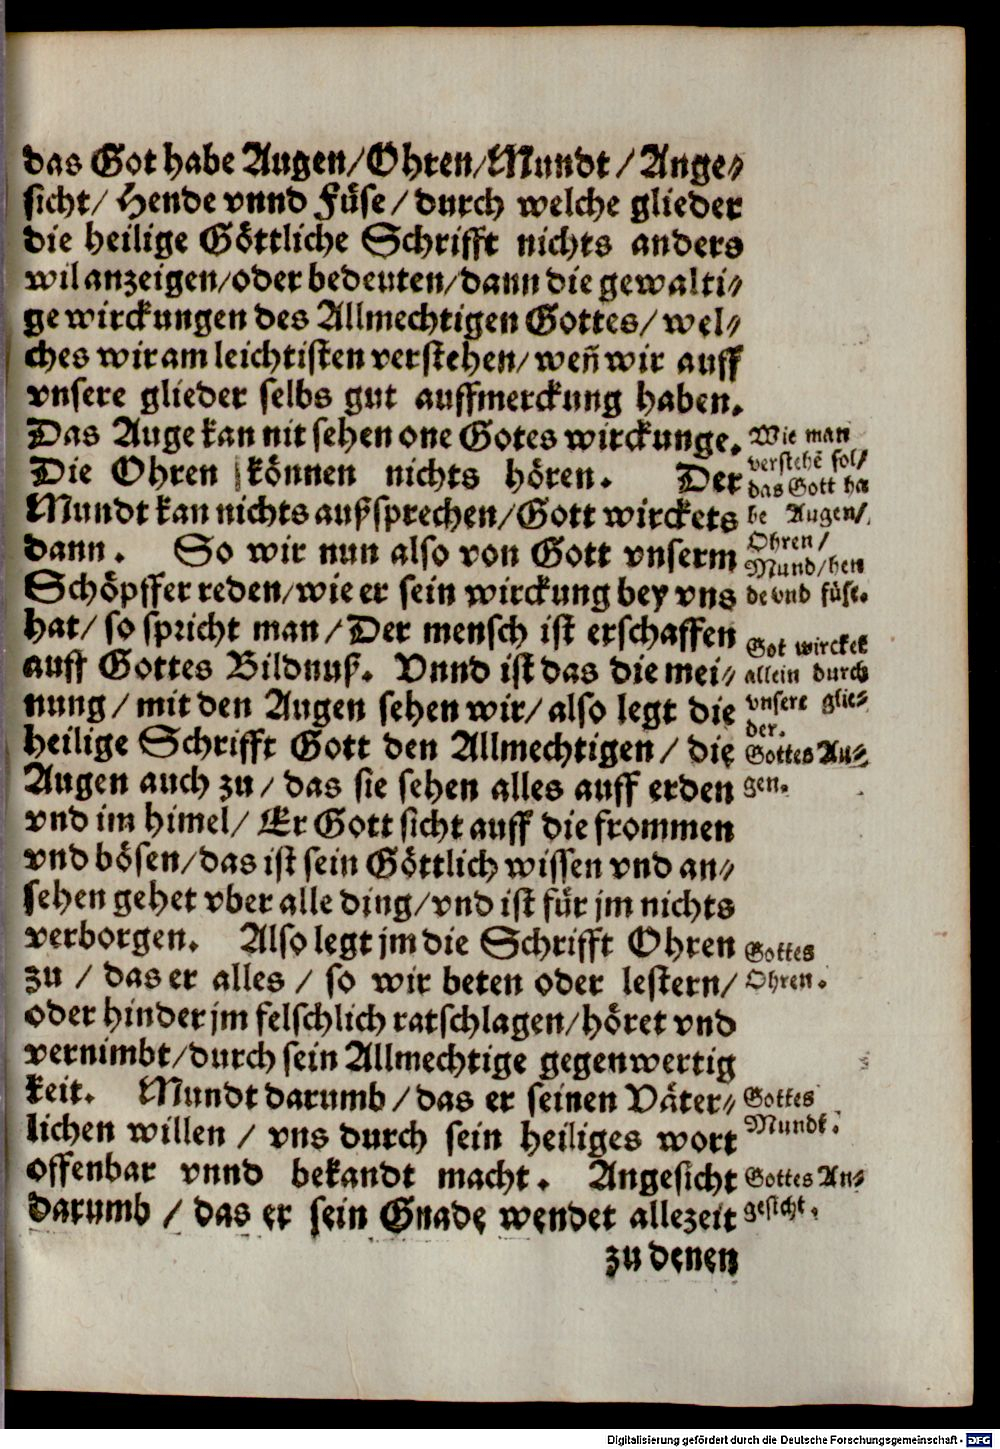 das Got habe Augen/Ohren/Mundt/Ange⸗
sicht/ Hende vnnd Füse/durch welche glieder
die heilige Göttliche Schrifft nichts anders
wil anzeigen/oder bedeuten/dann die gewalti⸗
ge wirckungen des Allmechtigen Gottes/ wel⸗
ches wir am leichtisten verstehen/ weñ wir auff
vnsere glieder selbs gut auffmerckung haben.
Das Auge kan nit sehen one Gotes wirckunge.
Die Ohren können nichts hören. Der
Mundt kan nichts außsprechen/Gott wirckets
dann. So wir nun also von Gott vnserm
Schöpffer reden/wie er sein wirckung bey vns
hat/ so spricht man/Der mensch ist erschaffen
auff Gottes Bildnuß. Vnnd ist das die mei⸗
nung/mit den Augen sehen wir/ also legt die
heilige Schrifft Gott den Allmechtigen/ die
Augen auch zu/ das sie sehen alles auff erden
vnd im himel/ Er Gott sicht auff die frommen
vnd bösen/das ist sein Göttlich wissen vnd an⸗
sehen gehet vber alle ding/vnd ist für jm nichts
verborgen. Also legt jm die Schrifft Ohren
zu / das er alles / so wir beten oder lestern/
oder hinder jm felschlich ratschlagen/höret vnd
vernimbt/durch sein Allmechtige gegenwertig
keit. Mundt darumb/das er seinen Väter⸗
lichen willen / vns durch sein heiliges wort
offenbar vnnd bekandt macht. Angesicht
darumb / das er sein Gnade wendet allezeit
zu denen
Wie man
verstehē sol/
das Gott ha
be Augen/
Ohren/
Mund/hen
de vnd füse.
Got wircket
allein durch
vnsere glie⸗
der.
Gottes Au⸗
gen.
Gottes
Ohren.
Gottes
Mundt.
Gottes An⸗
gesicht.
Digitalisierung gefördert durch die Deutsche Forschungsgemeinschaft - DFG